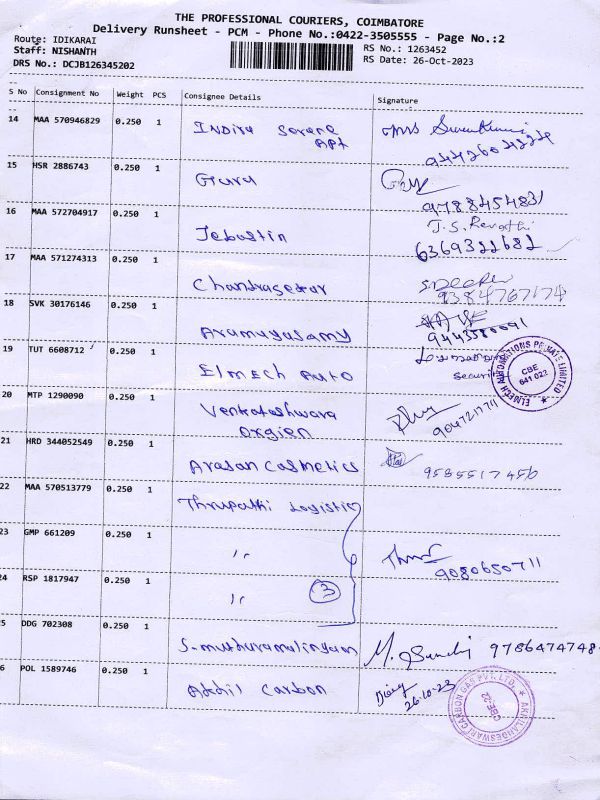 THE PROFESSIONAL COURIERS, COIMBATORE
Delivery Runsheet - PCM - Phone No.:0422-3505555 - Page No.:2
Route: IDIKARAI
RS No.: 1263452
Staff: NISHANTH
RS Date: 26-Oct-2023
DRS No.: DCJB126345202
S No Consignment No Weight PCS Consignee Details Signature
14 MAA 570946829 0.250 1 Indira
Apt
9442604224
15 HSR 2886743 0.250 1 Guru
9788454831
16 MAA 572704917 0.250 1 Jebastin J.S. Revathi
6369322682
17 MAA 571274313 0.250 1 Chandrasekar
9384767174
18 SVK 30176146 0.250 1
19 TUT 6608712 0.250 1 Elmech Auto
Security
CBE
641 022
20 MTP 1290090 0.250 1 Venkateshwara
21 HRD 344052549 0.250 1 Arasan Cosmetics
22 MAA 570513779 0.250 1 Thrupathi Logistic
23 GMP 661209 0.250 1 "
9080650711
24 RSP 1817947 0.250 1 " 3
5 DDG 702308 0.250 1 S. muthuramalingam 9786474748
6 POL 1589746 0.250 1 Akhil Carbon
26-10-23
AKHILANDESWARI CARBON GAS PVT. LTD.
CBE-22